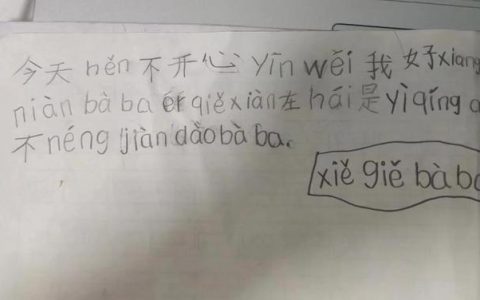 今天 hěn 不开心 yīn wèi 我 好 xiang
niàn bà ba ér qiě xiàn 在 hái 是 yì qíng
不 néng jiàn dǎo bà ba。
xiě giě bà ba